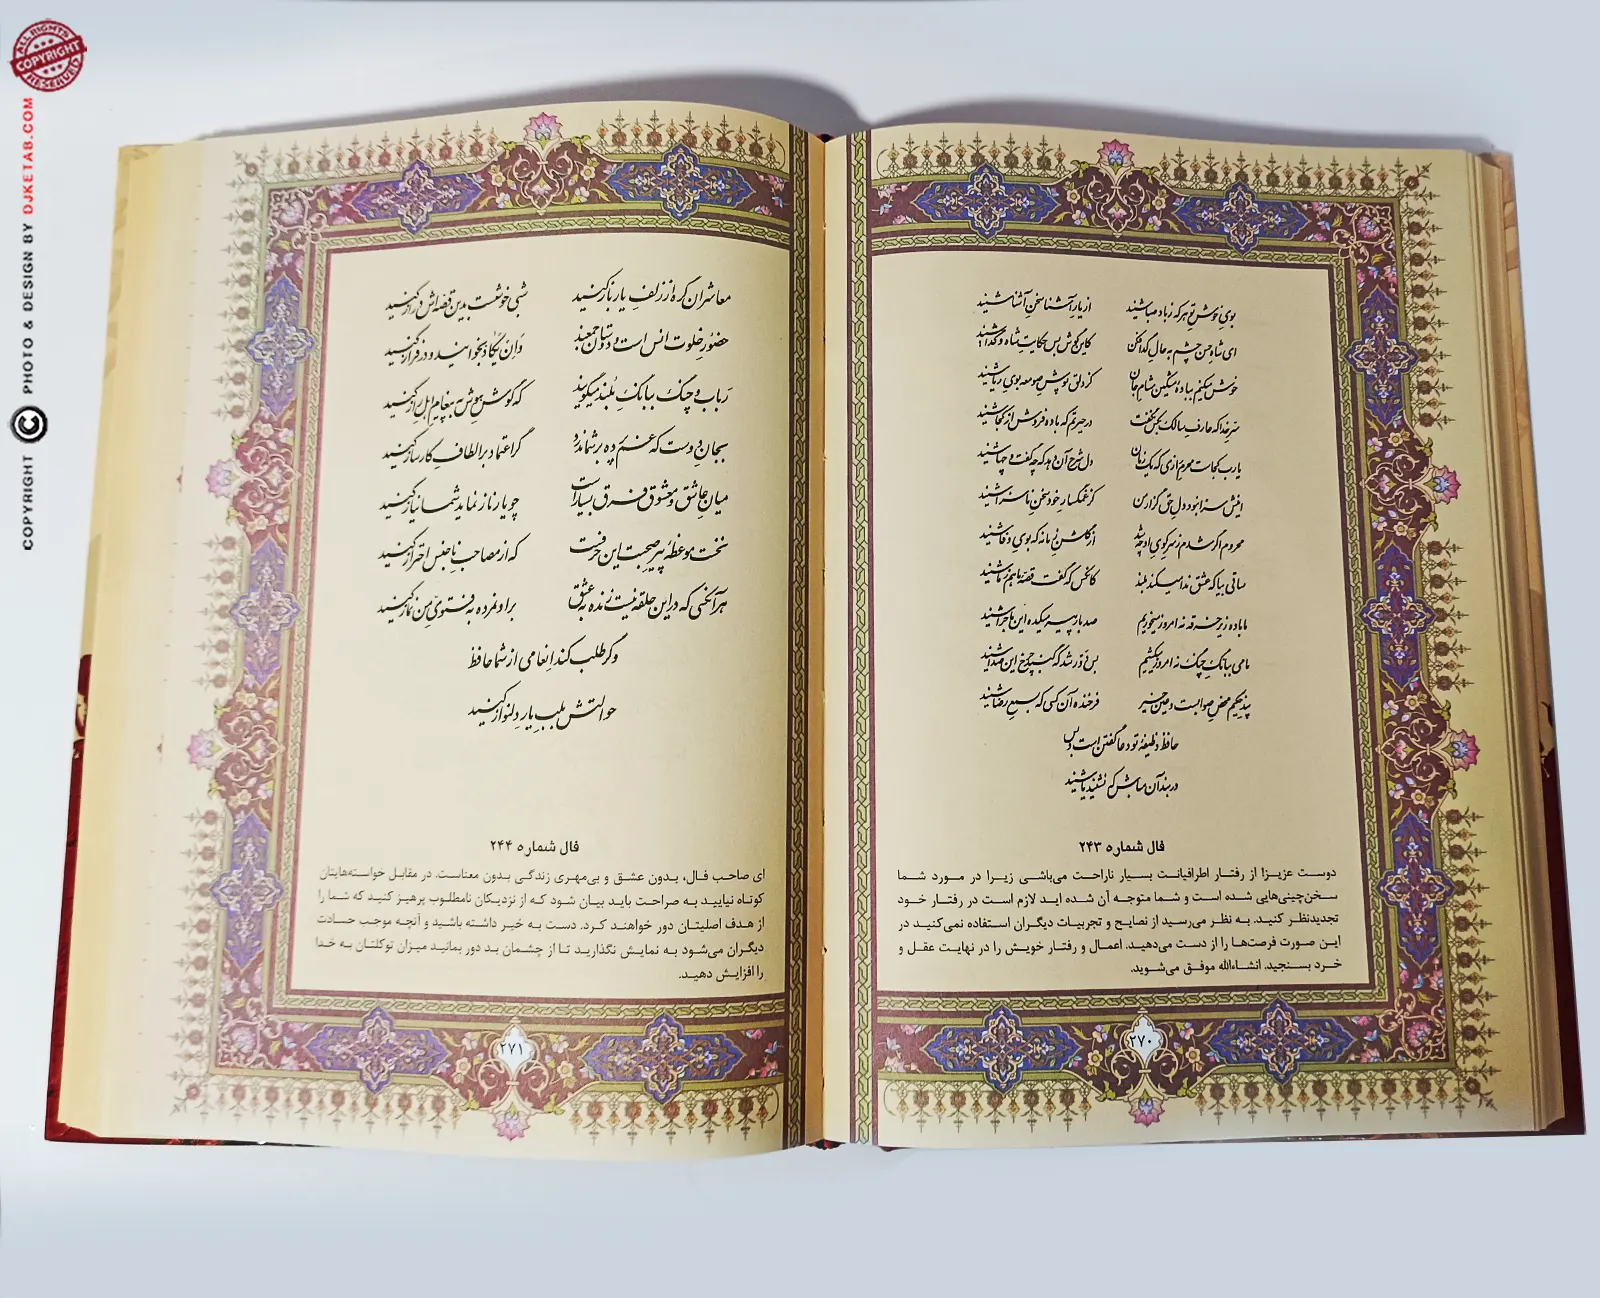 بوی خوش تو هر که ز باد صبا شنید از یار آشنا سخن آشنا شنید
ای شاه حسن چشم به حال گدا فکن کاین گوش بس حکایت شاه و گدا شنید
خوش میکنم بباده مشکین مشام جان کز دلق پوش صومعه بوی ریا شنید
سر خدا که عارف سالک بکس نگفت در حیرتم که باده فروش از کجا شنید
یارب کجاست محرم رازی که یک زمان دل شرح آن دهد که چه گفت و چها شنید
اینش سزا نبود دل حق گزار من کز غمگسار خود سخن ناسزا شنید
محروم اگر شدم ز سر کوی او چه شد از گلشن زمانه که بوی وفا شنید
ساقی بیا که عشق ندا میکند بلند کانکس که گفت قصه ما هم ز ما شنید
ما باده زیر خرقه نه امروز میخوریم صد بار پیر میکده این ماجرا شنید
ما می ببانگ چنگ نه امروز میکشیم بس دور شد که گنبد چرخ این صدا شنید
پند حکیم محض صوابست و عین خیر فرخنده آن کسی که بسمع رضا شنید
حافظ وظیفه تو دعا گفتن است و بس
در بند آن مباش که نشنید یا شنید
فال شماره ۲۴۳
دوست عزیز! از رفتار اطرافیانت بسیار ناراحت می‌باشی زیرا در مورد شما
سخن‌چینی‌هایی شده است و شما متوجه آن شده اید لازم است در رفتار خود
تجدیدنظر کنید. به نظر می‌رسید از نصایح و تجربیات دیگران استفاده نمی‌کنید در
این صورت فرصت‌ها را از دست می‌دهید. اعمال و رفتار خویش را در نهایت عقل و
خرد بسنجید. انشاءالله موفق می‌شوید.
۲۷۰
معاشران گره از زلف یار باز کنید شبی خوشست بدین قصه‌اش دراز کنید
حضور خلوت انس است و دوستان جمعند وان یکاد بخوانید و در فراز کنید
رباب و چنگ ببانگ بلند میگویند که گوش هوش به پیغام اهل راز کنید
بجان دوست که غم پرده بر شما ندرد گر اعتماد بر الطاف کارساز کنید
میان عاشق و معشوق فرق بسیارست چو یار ناز نماید شما نیاز کنید
نخست موعظه پیر صحبت این حرفست که از مصاحب ناجنس احتراز کنید
هر آنکسی که در این حلقه نیست زنده به عشق بر او نمرده به فتوی من نماز کنید
وگر طلب کند انعامی از شما حافظ
حوالتش بلب یار دلنواز کنید
فال شماره ۲۴۴
ای صاحب فال، بدون عشق و بی‌مهری زندگی بدون معناست. در مقابل خواسته‌هایتان
کوتاه نیایید به صراحت باید بیان شود که از نزدیکان نامطلوب پرهیز کنید که شما را
از هدف اصلیتان دور خواهند کرد. دست به خیر داشته باشید و آنچه موجب حسادت
دیگران می‌شود به نمایش نگذارید تا از چشمان بد دور بمانید میزان توکلتان به خدا
را افزایش دهید.
۲۷۱
ALL RIGHTS
COPYRIGHT
RESERVED
COPYRIGHT © PHOTO & DESIGN BY DJKETAB.COM